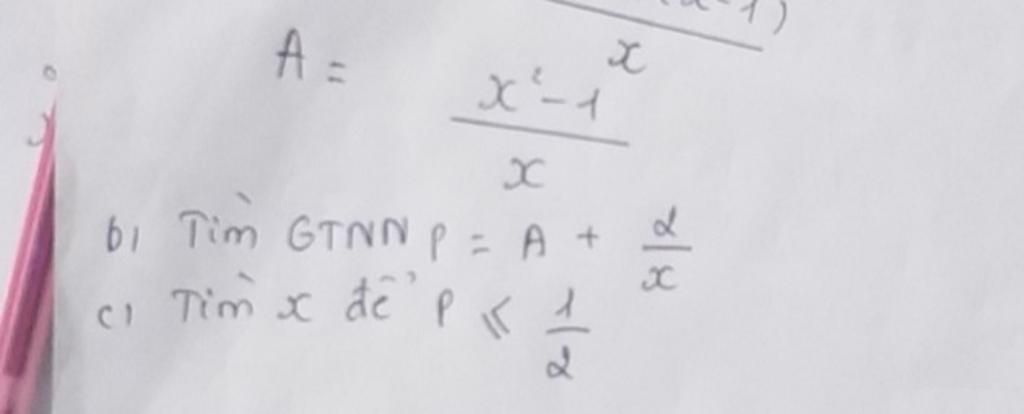 (x-1)
x
A = x²-1 / x
b) Tìm GTNN P = A + 2/x
c) Tìm x để P ≤ 1/2